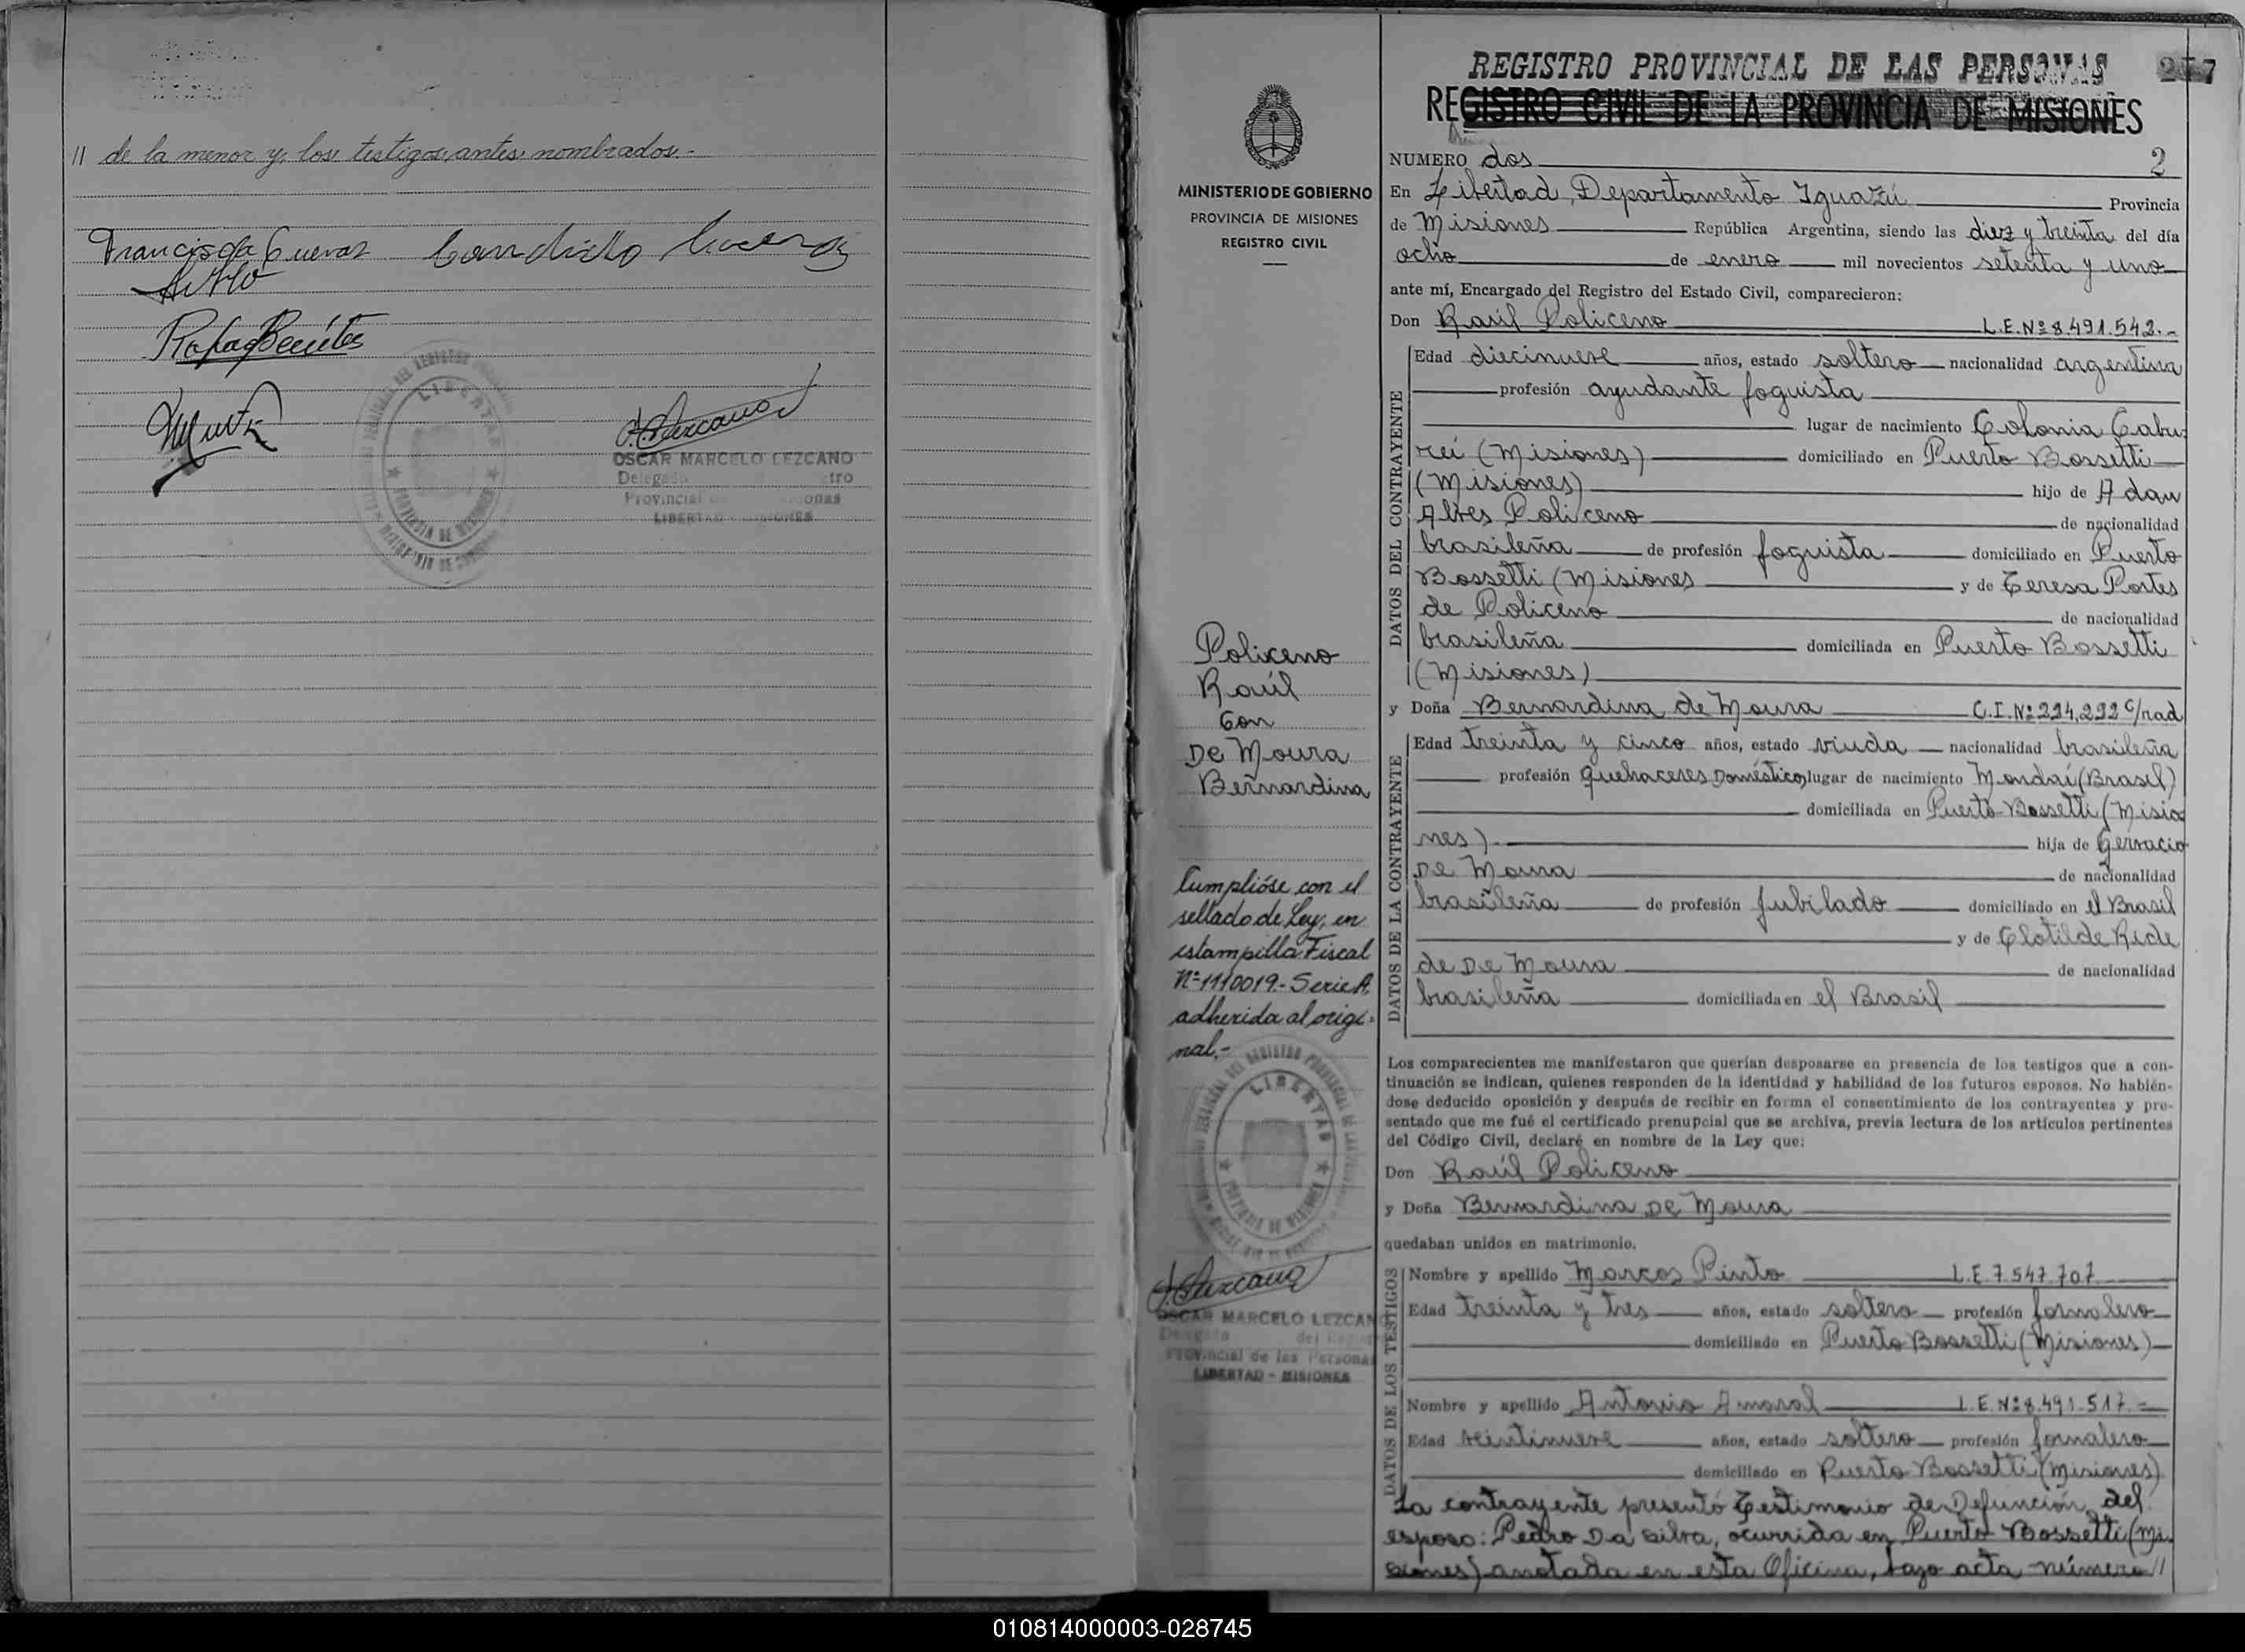 // de la menor y los testigos antes nombrados.-
Rafael Benítez
LIBERTAD
OSCAR MARCELO LEZCANO
Delegado
Provincial
LIBERTAD - MISIONES
MINISTERIO DE GOBIERNO
PROVINCIA DE MISIONES
REGISTRO CIVIL
Policeno
Raúl
Con
De Moura
Bernardina
Cumplióse con el
sellado de Ley, en
estampilla Fiscal
Nº 1110019.- Serie A.
adherida al origi-
nal.-
LIBERTAD
PROVINCIA DE MISIONES
OSCAR MARCELO LEZCANO
Delegado del
Provincial de las Personas
LIBERTAD - MISIONES
REGISTRO PROVINCIAL DE LAS PERSONAS
REGISTRO CIVIL DE LA PROVINCIA DE MISIONES
NUMERO dos 2
En Libertad, Departamento Iguazú Provincia
de Misiones República Argentina, siendo las diez y treinta del día
ocho de enero mil novecientos setenta y uno
ante mí, Encargado del Registro del Estado Civil, comparecieron:
Don Raúl Policeno L.E. Nº 8.491.542.-
DATOS DEL CONTRAYENTE
Edad diecinueve años, estado soltero nacionalidad argentina
profesión ayudante foguista
lugar de nacimiento Colonia Cabu-
reí (Misiones) domiciliado en Puerto Bossetti
(Misiones) hijo de Adan
Alves Policeno de nacionalidad
brasileña de profesión foguista domiciliado en Puerto
Bossetti (Misiones y de Teresa Portes
de Policeno de nacionalidad
brasileña domiciliada en Puerto Bossetti
(Misiones)
y Doña Bernardina de Moura C.I. Nº 234,232 c/rad
DATOS DE LA CONTRAYENTE
Edad treinta y cinco años, estado viuda nacionalidad brasileña
profesión quehaceres Domésticos lugar de nacimiento Mondaí (Brasil)
domiciliada en Puerto Bossetti (Misio
nes). hija de Gervacio
De Moura de nacionalidad
brasileña de profesión Jubilado domiciliado en el Brasil
y de Clotilde Ride
de De Moura de nacionalidad
brasileña domiciliada en el Brasil
Los comparecientes me manifestaron que querían desposarse en presencia de los testigos que a con-
tinuación se indican, quienes responden de la identidad y habilidad de los futuros esposos. No habién-
dose deducido oposición y después de recibir en forma el consentimiento de los contrayentes y pre-
sentado que me fué el certificado prenupcial que se archiva, previa lectura de los artículos pertinentes
del Código Civil, declaré en nombre de la Ley que:
Don Raúl Policeno
y Doña Bernardina De Moura
quedaban unidos en matrimonio.
DATOS DE LOS TESTIGOS
Nombre y apellido Marcos Pinto L.E. 7.547.707
Edad treinta y tres años, estado soltero profesión jornalero
domiciliado en Puerto Bossetti (Misiones)
Nombre y apellido Antonio Amaral L.E. Nº 8.491.517.-
Edad veintinueve años, estado soltero profesión jornalero
domiciliado en Puerto Bossetti (Misiones)
La contrayente presentó Testimonio de Defunción del
esposo: Pedro Da Silva, ocurrida en Puerto Bossetti (Mi-
siones) anotada en esta Oficina, bajo acta número //
010814000003-028745